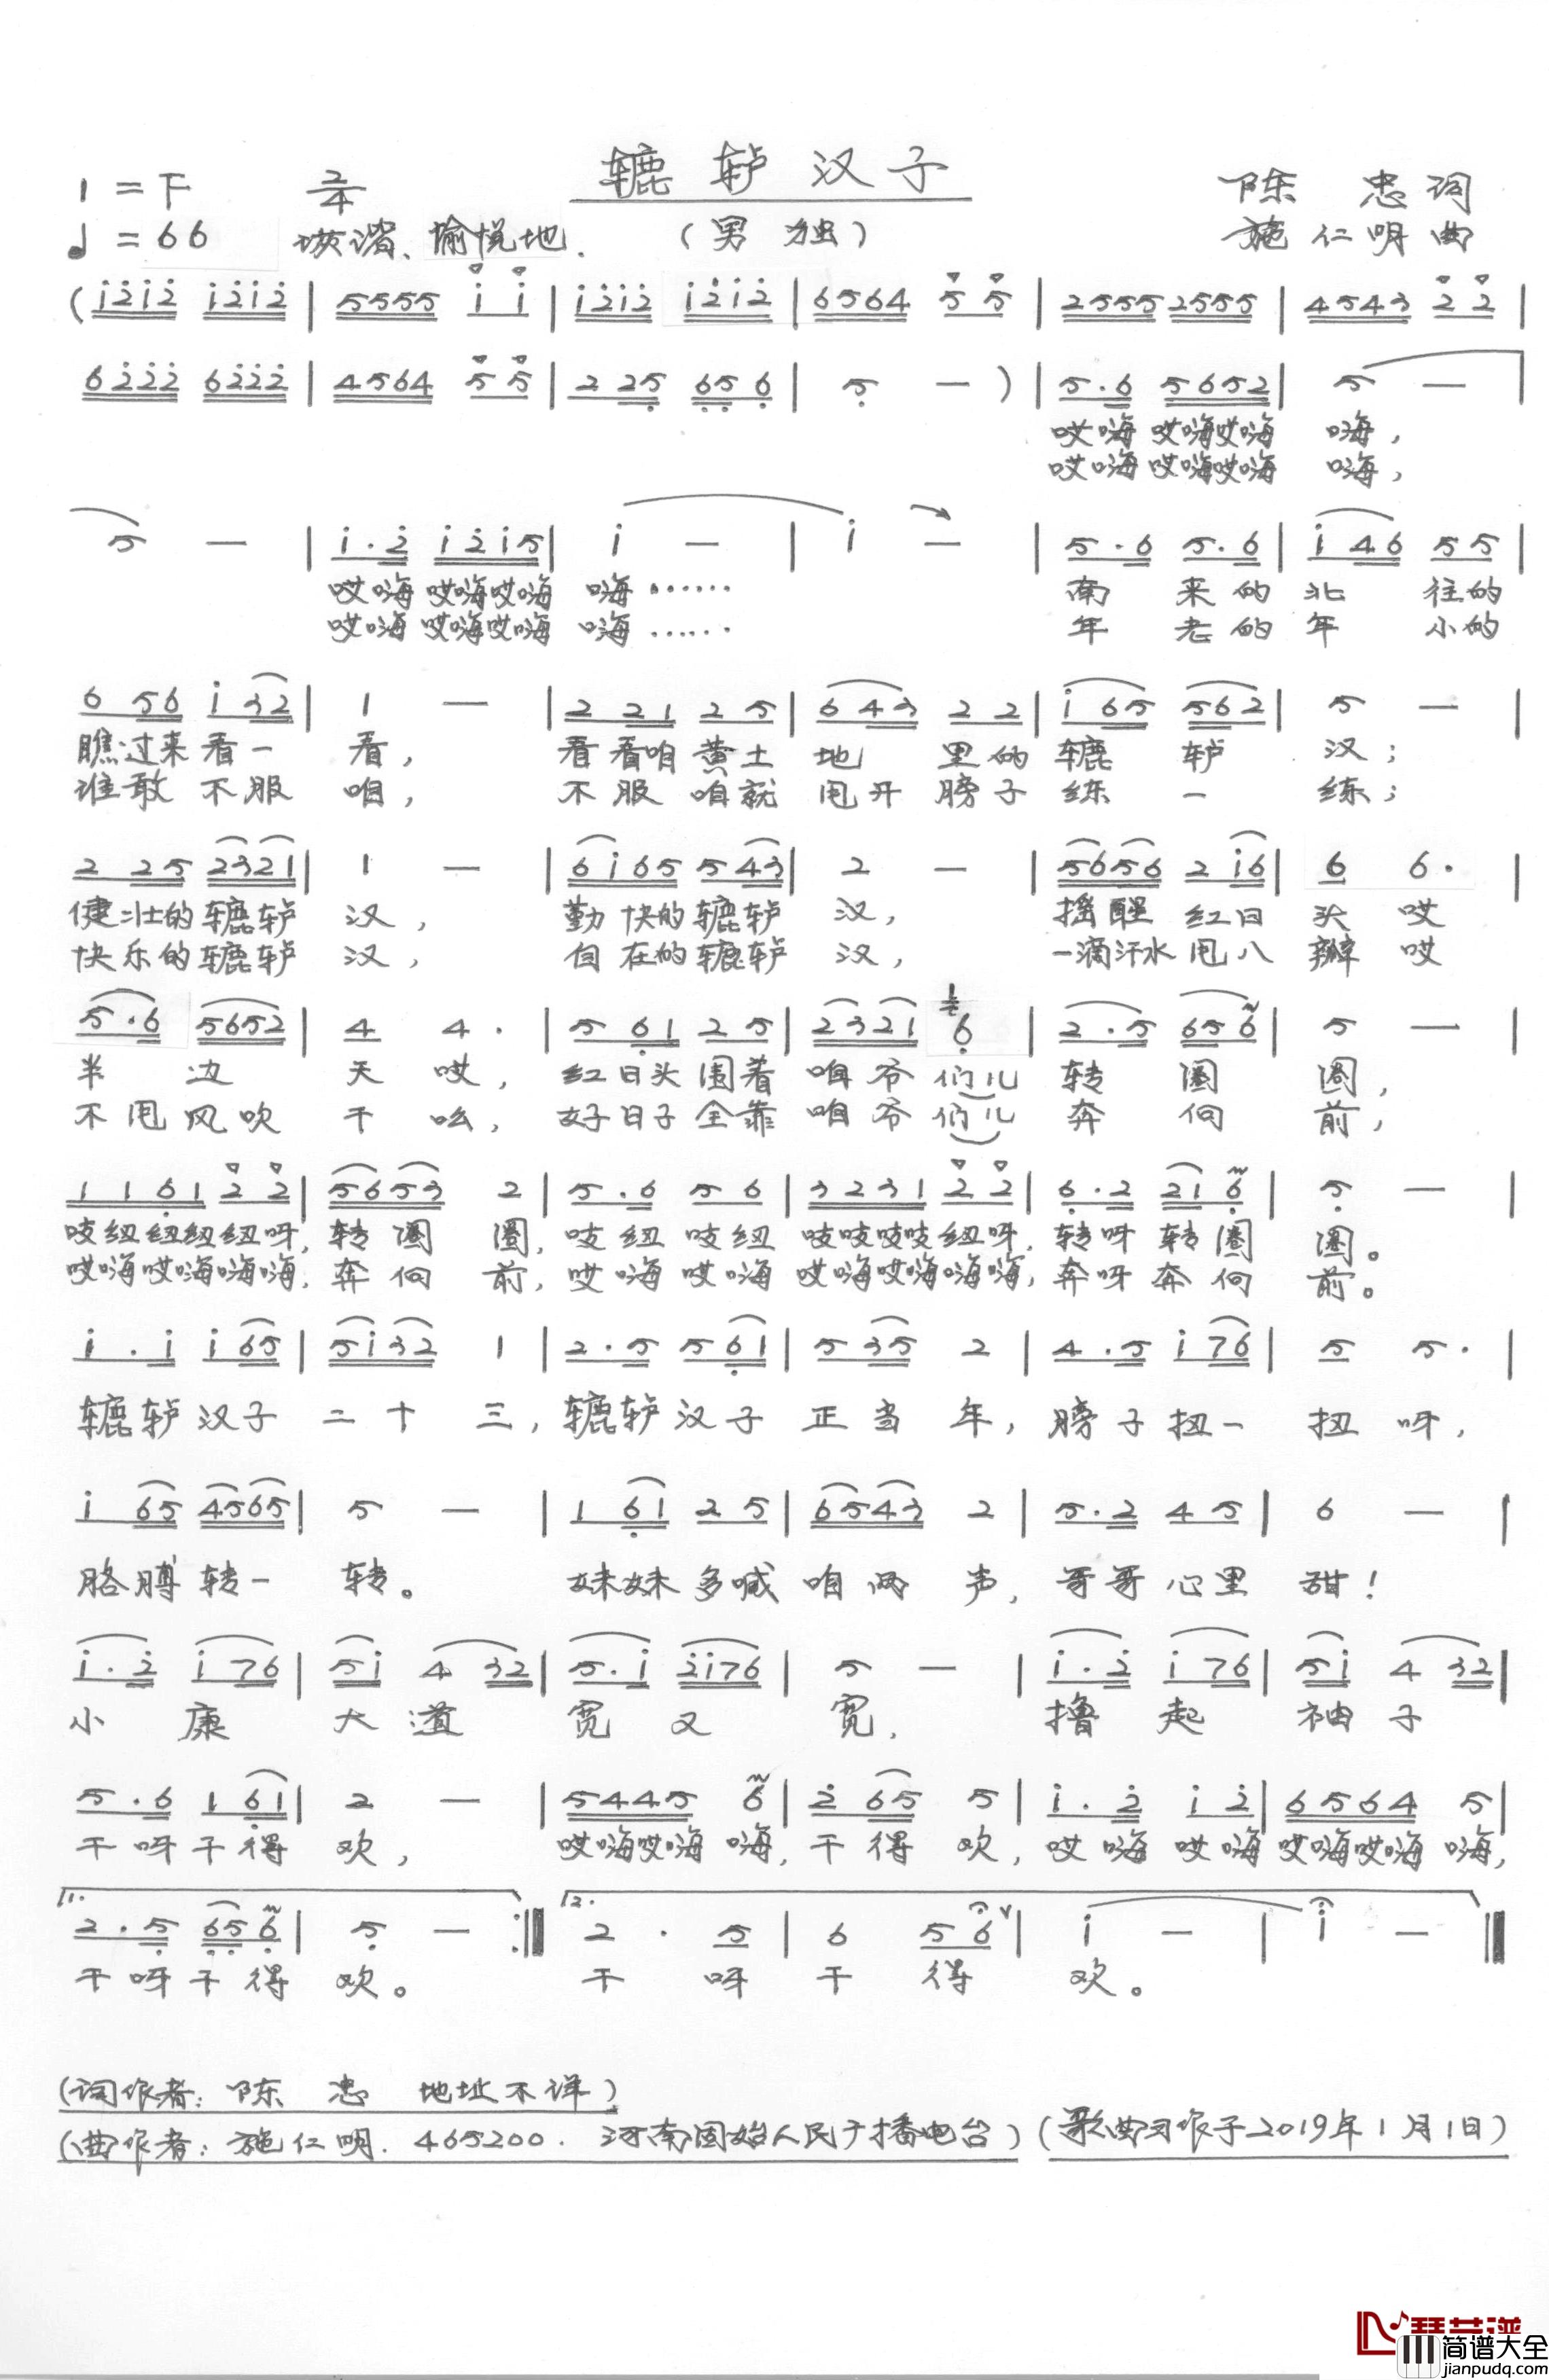 辘轳汉子
1=F 2/4 陈忠词
♩=66 诙谐、愉悦地. (男独) 施仁明曲
(i̇2̇i̇2̇ i̇2̇i̇2̇|5555 i̇ i̇|i̇2̇i̇2̇ i̇2̇i̇2̇|6564 5 5|2555 2555|4543 2 2|
62̇2̇2̇ 62̇2̇2̇|4564 5 5|2 25 656|5 —)|5·6 5652|5 —|
哎嗨 哎嗨哎嗨 嗨,
哎嗨 哎嗨哎嗨 嗨,
5 —|i̇·2̇ i̇2̇i̇5|i̇ —|i̇ —|5·6 5·6|i̇ 46 55|
哎嗨 哎嗨哎嗨 嗨…… 南 来的 北 往的
哎嗨 哎嗨哎嗨 嗨…… 年 老的 年 小的
6 56 i̇ 32|1 —|2 21 2 5|6 43 2 2|i̇ 65 562|5 —|
瞧过来 看一 看, 看看咱 黄土 地 里的 辘 轳 汉;
谁敢 不服 咱, 不服 咱就 甩开 膀子 练 一 练;
2 25 2321|1 —|6i̇65 5 43|2 —|5656 2 i̇6|6 6·|
健壮的 辘轳 汉, 勤快的 辘轳 汉, 摇醒 红日 头 哎
快乐的 辘轳 汉, 自在的 辘轳 汉, 一滴汗水 甩八 瓣 哎
5·6 5652|4 4·|5 61 2 5|2321 6|2·5 656|5 —|
半 边 天 哎, 红日头 围着 咱爷 们儿 转 圈 圈,
不甩 风吹 干 吆, 好日子 全靠 咱爷 们儿 奔 向 前,
1161 2 2|5653 2|5·6 5 6|3231 2 2|6·2 216|5 —|
吱纽纽纽纽呀, 转圈 圈, 吱纽 吱纽 吱吱吱吱纽呀, 转呀 转圈 圈。
哎嗨哎嗨嗨嗨, 奔向 前, 哎嗨 哎嗨 哎嗨哎嗨嗨嗨, 奔呀 奔向 前。
i̇·i̇ i̇ 65|5i̇32 1|2·5 5 61|5 35 2|4·5 i̇ 76|5 5·|
辘轳 汉子 二十 三, 辘轳 汉子 正当 年, 膀子 扭一 扭 呀,
i̇ 65 4565|5 —|1 61 2 5|6543 2|5·2 4 5|6 —|
胳膊 转一 转。 妹妹 多喊 咱两 声, 哥哥 心里 甜!
i̇·2̇ i̇ 76|5i̇ 4 32|5·i̇ 2̇i̇76|5 —|i̇·2̇ i̇ 76|5i̇ 4 32|
小 康 大 道 宽 又 宽, 撸 起 袖 子
5·6 1 61|2 —|5445 6|2̇ 65 5|i̇·2̇ i̇ 2̇|6564 5|
干呀 干得 欢, 哎嗨哎嗨 嗨, 干得 欢, 哎嗨 哎嗨 哎嗨哎嗨 嗨,
1. 2·5 656|5 — :‖ 2. 2·5|6 5 6|i̇ —|i̇ —‖
干呀 干得 欢。 干 呀 干 得 欢。
(词作者:陈忠 地址不详)
(曲作者:施仁明. 465200. 河南固始人民广播电台)(歌曲习作于2019年1月1日)
琴艺谱
简谱大全
jianpudq.com